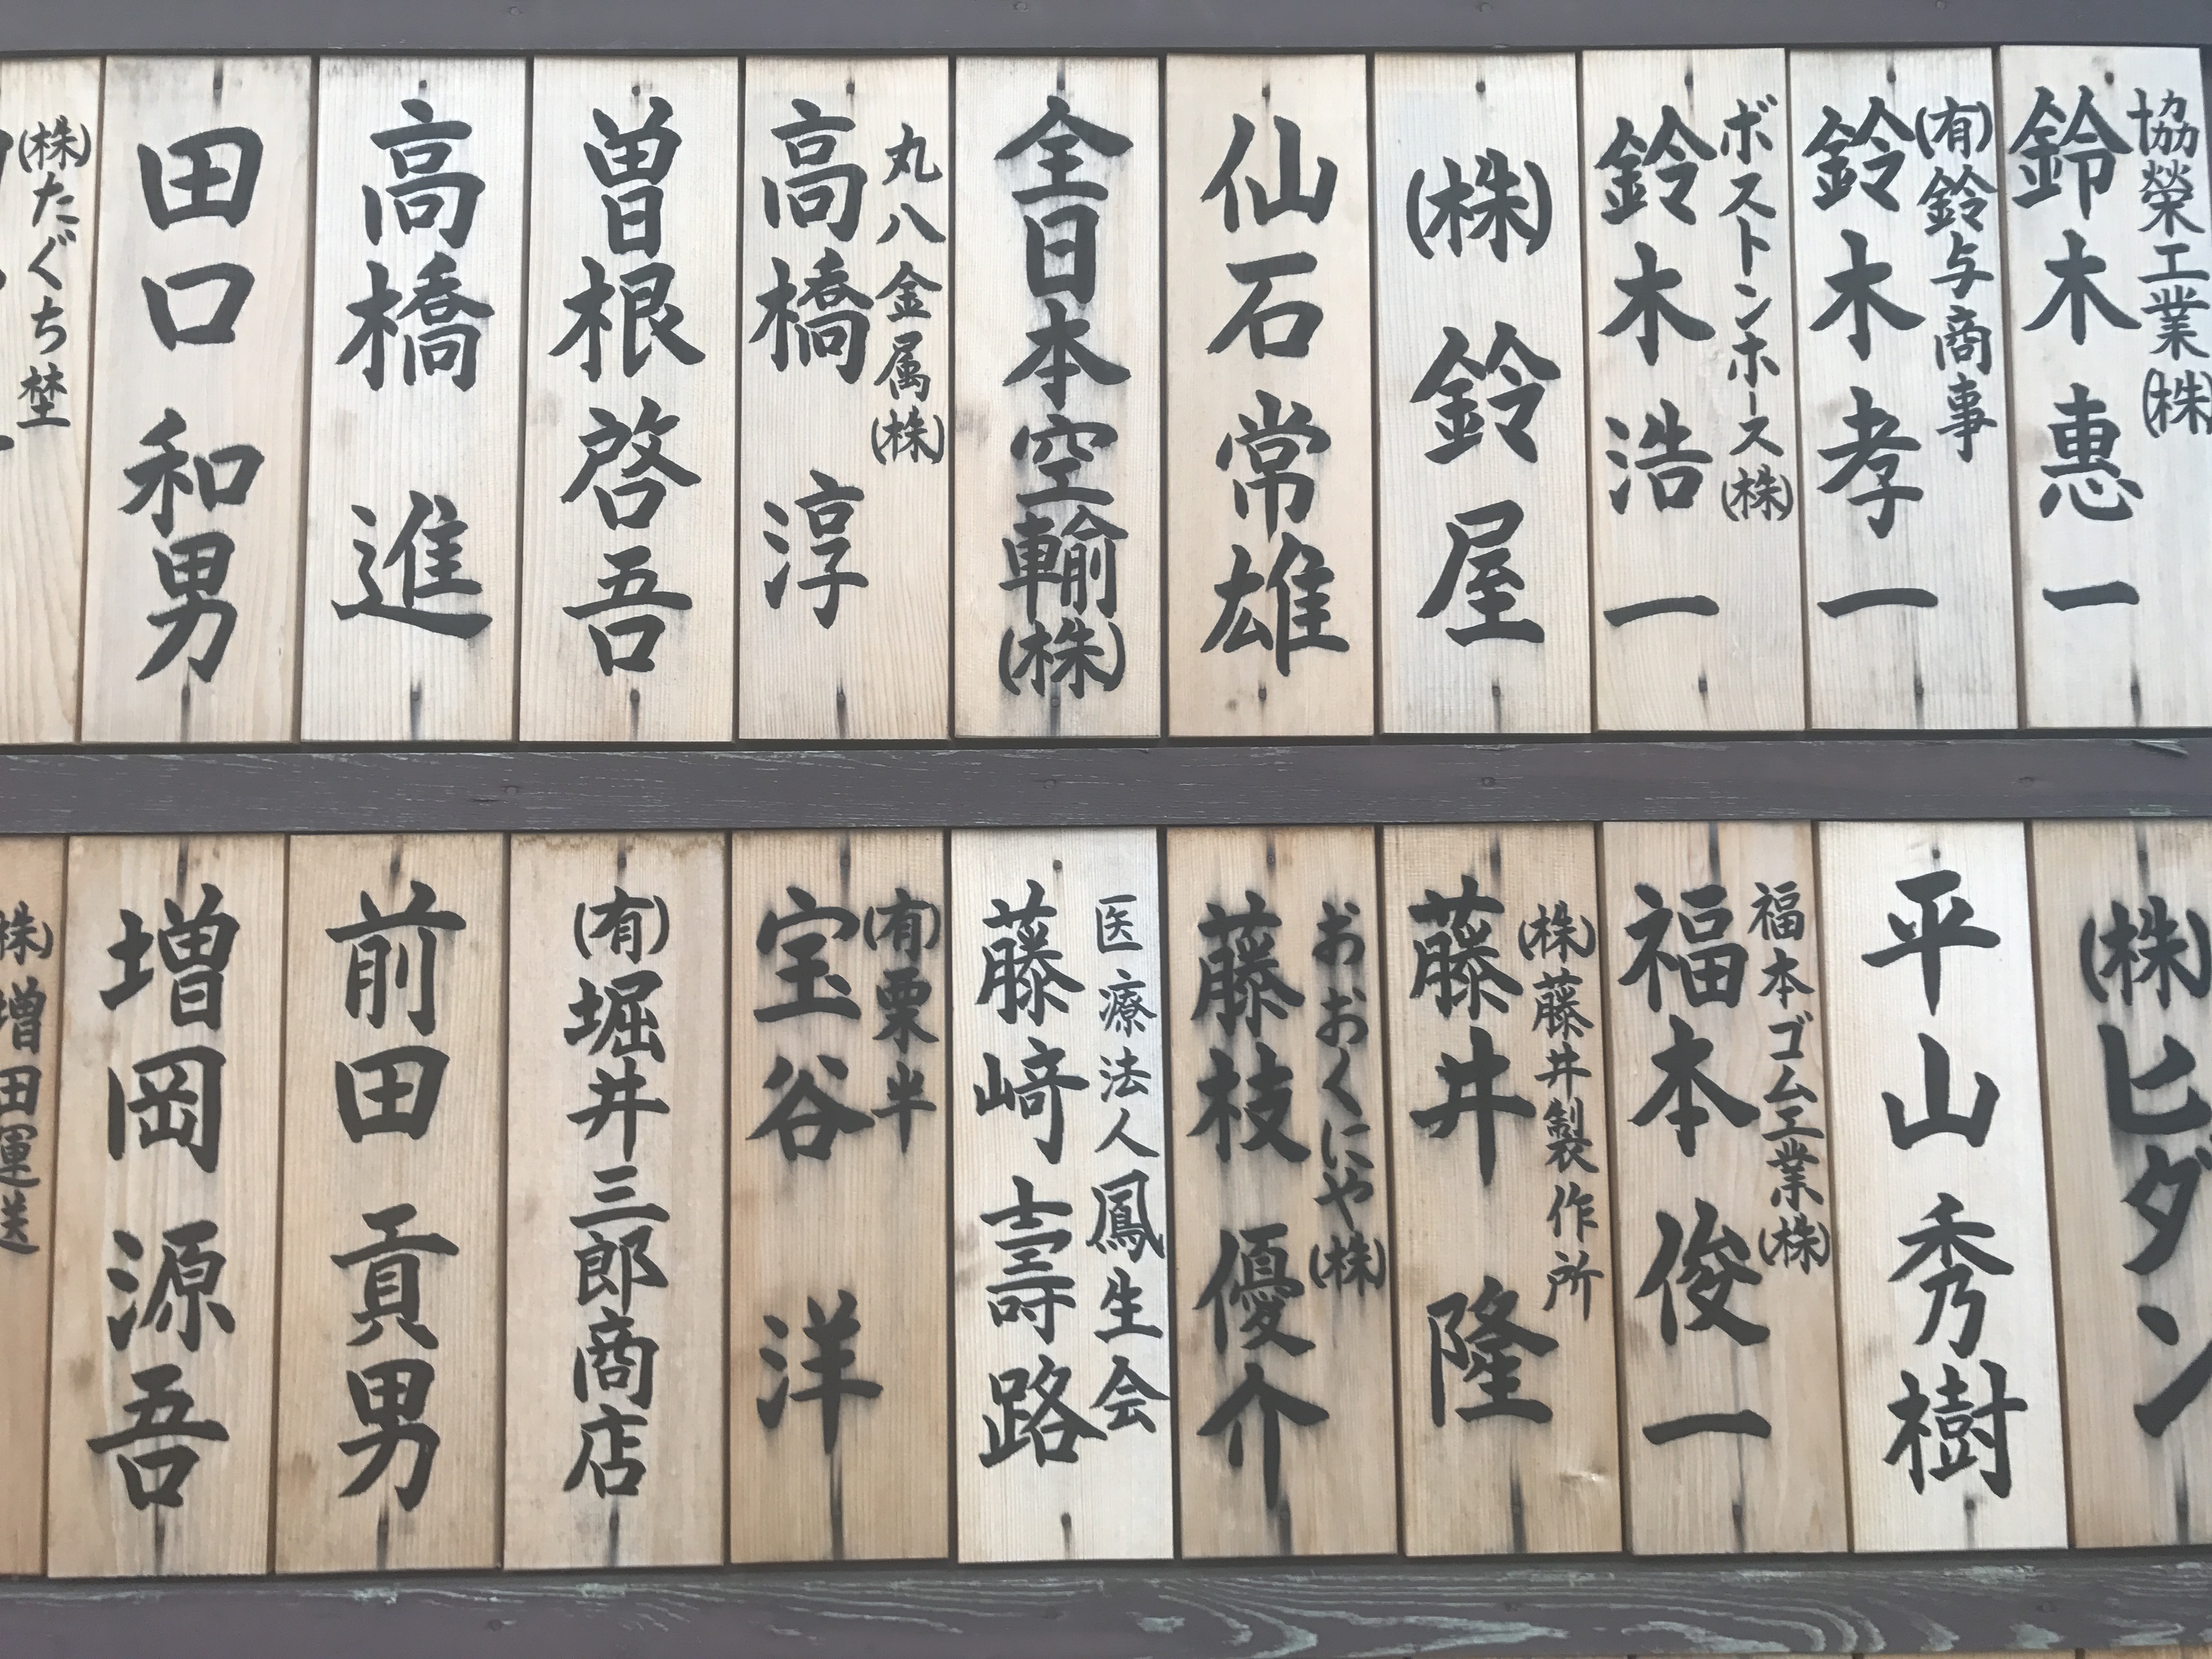 協榮工業(株)
鈴木惠一
(有)鈴与商事
鈴木孝一
ボストンホース(株)
鈴木浩一
(株)鈴屋
仙石常雄
全日本空輸(株)
丸八金属(株)
高橋淳
曽根啓吾
高橋進
田口和男
(株)たぐち埜
(株)ヒダン
平山秀樹
福本ゴム工業(株)
福本俊一
(株)藤井製作所
藤井隆
おおくにや(株)
藤枝優介
医療法人鳳生会
藤﨑壽路
(有)栗半
宝谷洋
(有)堀井三郎商店
前田貢男
増岡源吾
(株)増田運送